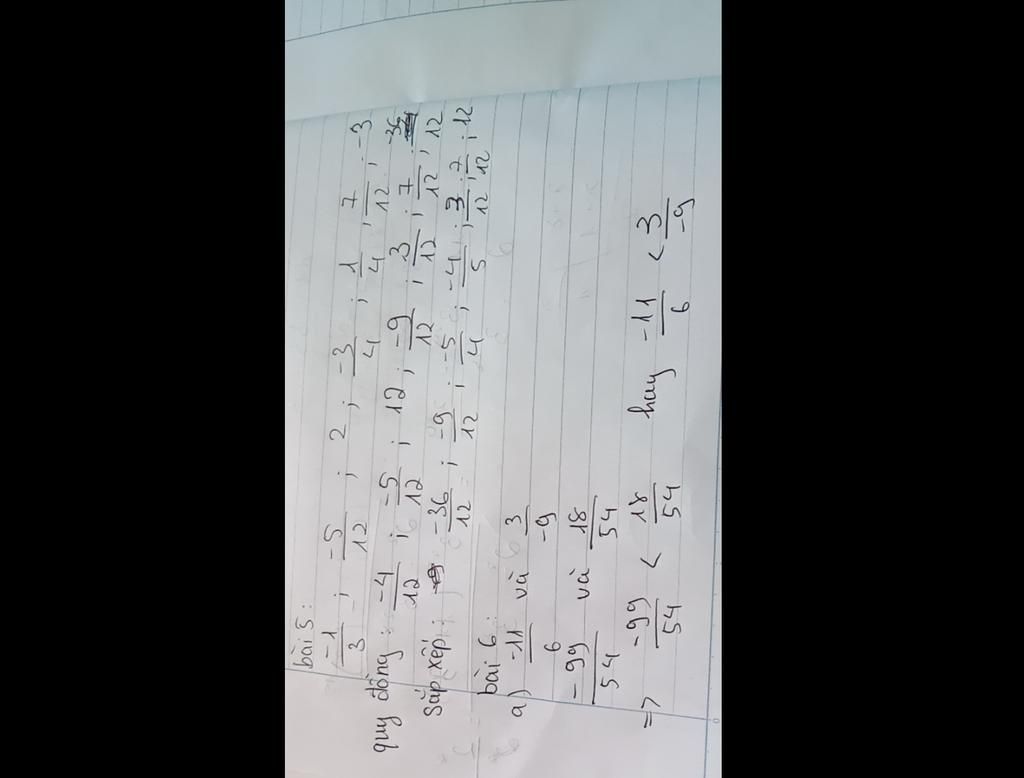 bài 5:
-1/3 ; -5/12 ; 2 ; -3/4 ; 1/4 ; 7/12 ; -3
quy đồng: -4/12 ; -5/12 ; 12 ; -9/12 ; 3/12 ; 7/12 ; -36/12
Sắp xếp: -36/12 ; -9/12 ; -5/4 ; -4/5 ; 3/12 ; 7/12 ; 12
bài 6:
a) -11/6 và 3/-9
-99/54 và 18/54
=> -99/54 < 18/54 hay -11/6 < 3/-9